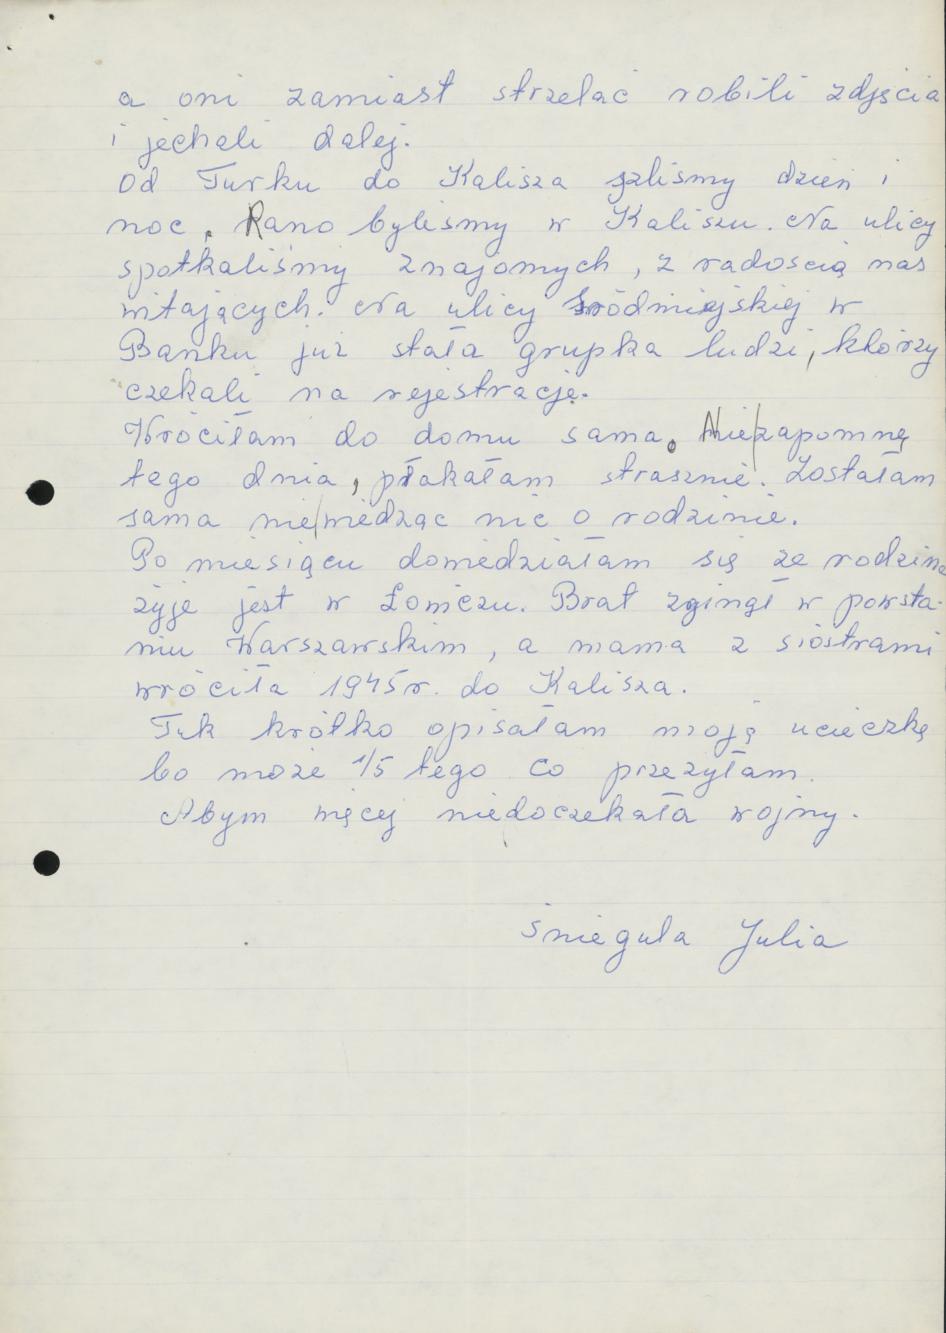 a oni zamiast strzelać robili zdjęcia
i jechali dalej.
Od Turku do Kalisza szliśmy dzień i
noc. Rano byliśmy w Kaliszu. Na ulicy
spotkaliśmy znajomych, z radością nas
witających. Na ulicy Śródmiejskiej w
Banku już stała grupka ludzi, którzy
czekali na rejestrację.
Wróciłam do domu sama. Nie|zapomnę
tego dnia, płakałam strasznie. Zostałam
sama nie|wiedząc nic o rodzinie.
Po miesiącu dowiedziałam się że rodzina
żyje jest w Łowiczu. Brat zginął w powsta-
niu Warszawskim, a mama z siostrami
wróciła 1945r. do Kalisza.
Tak krótko opisałam moją ucieczkę
bo może 1/5 tego co przeżyłam.
Abym więcej niedoczekała wojny.
Śnieguła Julia